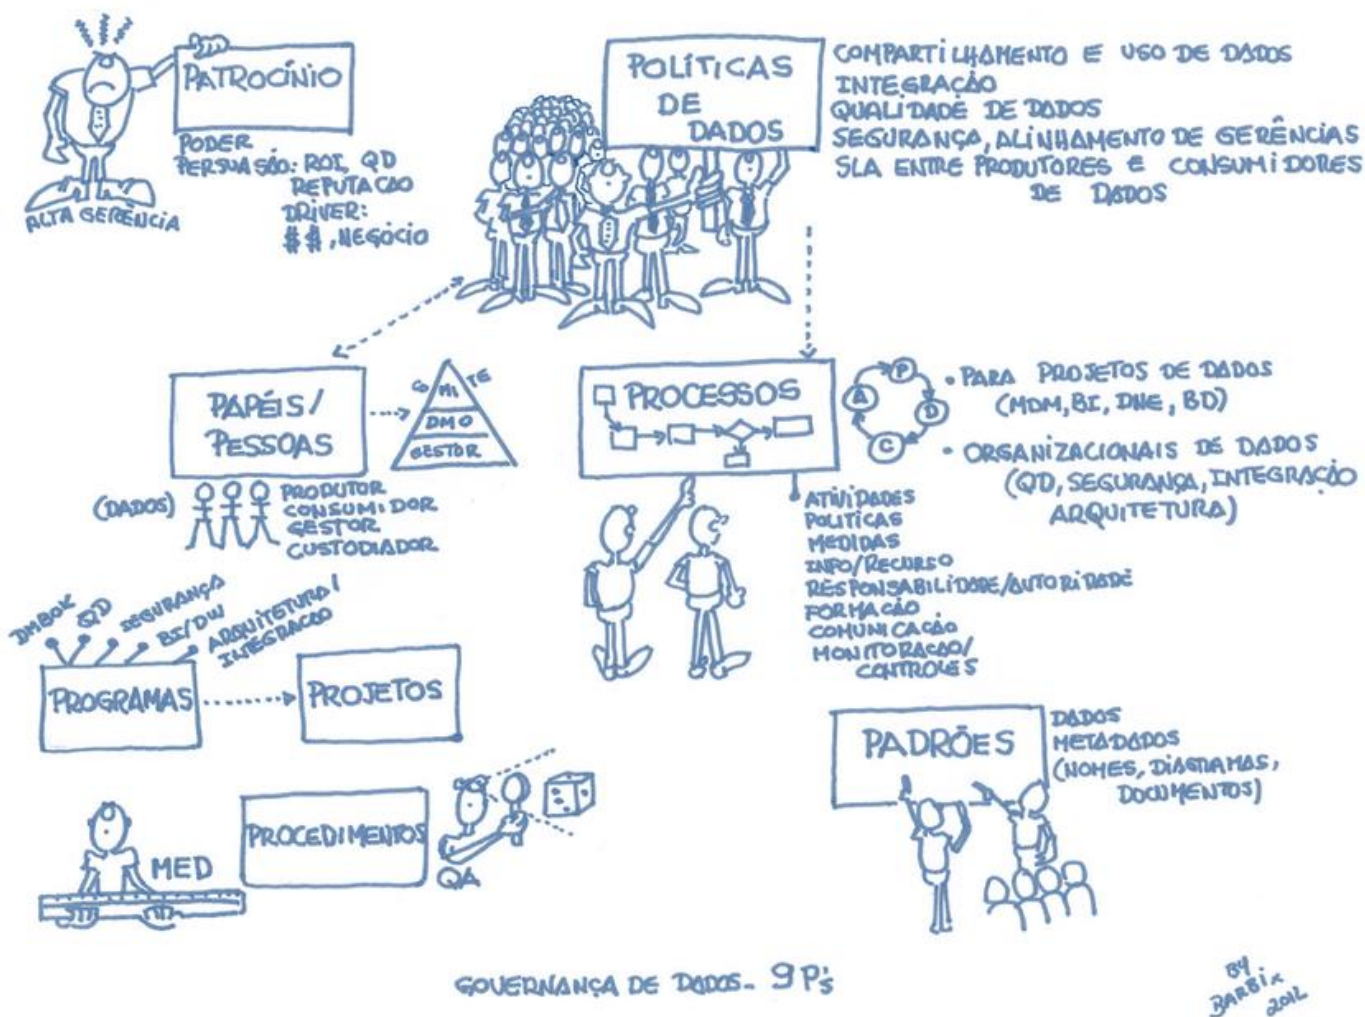 PATROCÍNIO
PODER
PERSUASÃO: ROI, QD
REPUTACAO
DRIVER:
$$, NEGÓCIO
ALTA GERÊNCIA
POLÍTICAS
DE
DADOS
COMPARTILHAMENTO E USO DE DADOS
INTEGRAÇÃO
QUALIDADE DE DADOS
SEGURANÇA, ALINHAMENTO DE GERÊNCIAS
SLA ENTRE PRODUTORES E CONSUMIDORES
DE DADOS
PAPÉIS/
PESSOAS
COMITE
DMO
GESTOR
(DADOS)
PRODUTOR
CONSUMIDOR
GESTOR
CUSTODIADOR
PROCESSOS
P
D
C
A
• PARA PROJETOS DE DADOS
(MDM, BI, DNE, BD)
• ORGANIZACIONAIS DE DADOS
(QD, SEGURANÇA, INTEGRAÇÃO
ARQUITETURA)
ATIVIDADES
POLITICAS
MEDIDAS
INFO/RECURSO
RESPONSABILIDADE/AUTORIDADE
FORMAÇÃO
COMUNICAÇÃO
MONITORACAO/
CONTROLES
DMBOK
QD
SEGURANÇA
BI/DW
ARQUITETURA/
INTEGRACAO
PROGRAMAS
PROJETOS
PADRÕES
DADOS
METADADOS
(NOMES, DIAGRAMAS,
DOCUMENTOS)
MED
PROCEDIMENTOS
QA
GOVERNANÇA DE DADOS - 9 P's
BY
BARBIX
2012